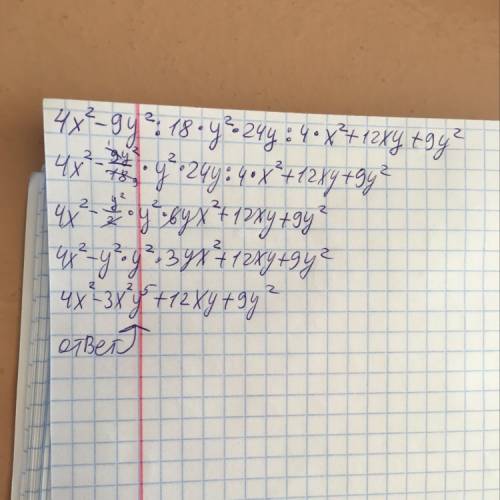 4x²-9y²:18·y²·24y:4·x²+12xy+9y²
4x²-9y²/18·y²·24y:4·x²+12xy+9y²
4x²-y²/2·y²·6yx²+12xy+9y²
4x²-y²·y²·3yx²+12xy+9y²
4x²-3x²y⁵+12xy+9y²
ответ